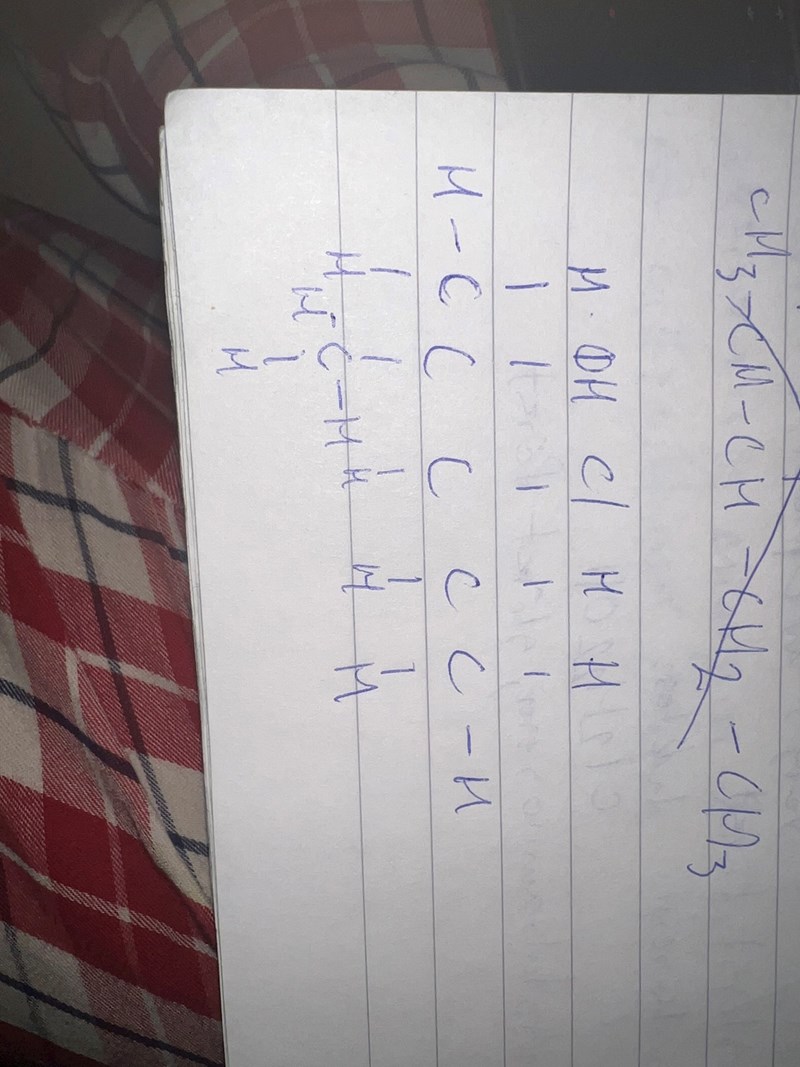 CH3-CH-CH-CH2-CH3
H OH Cl H H
| | | | |
H-C C C C C-H
| | | | |
H H H H
H-C-H
|
H